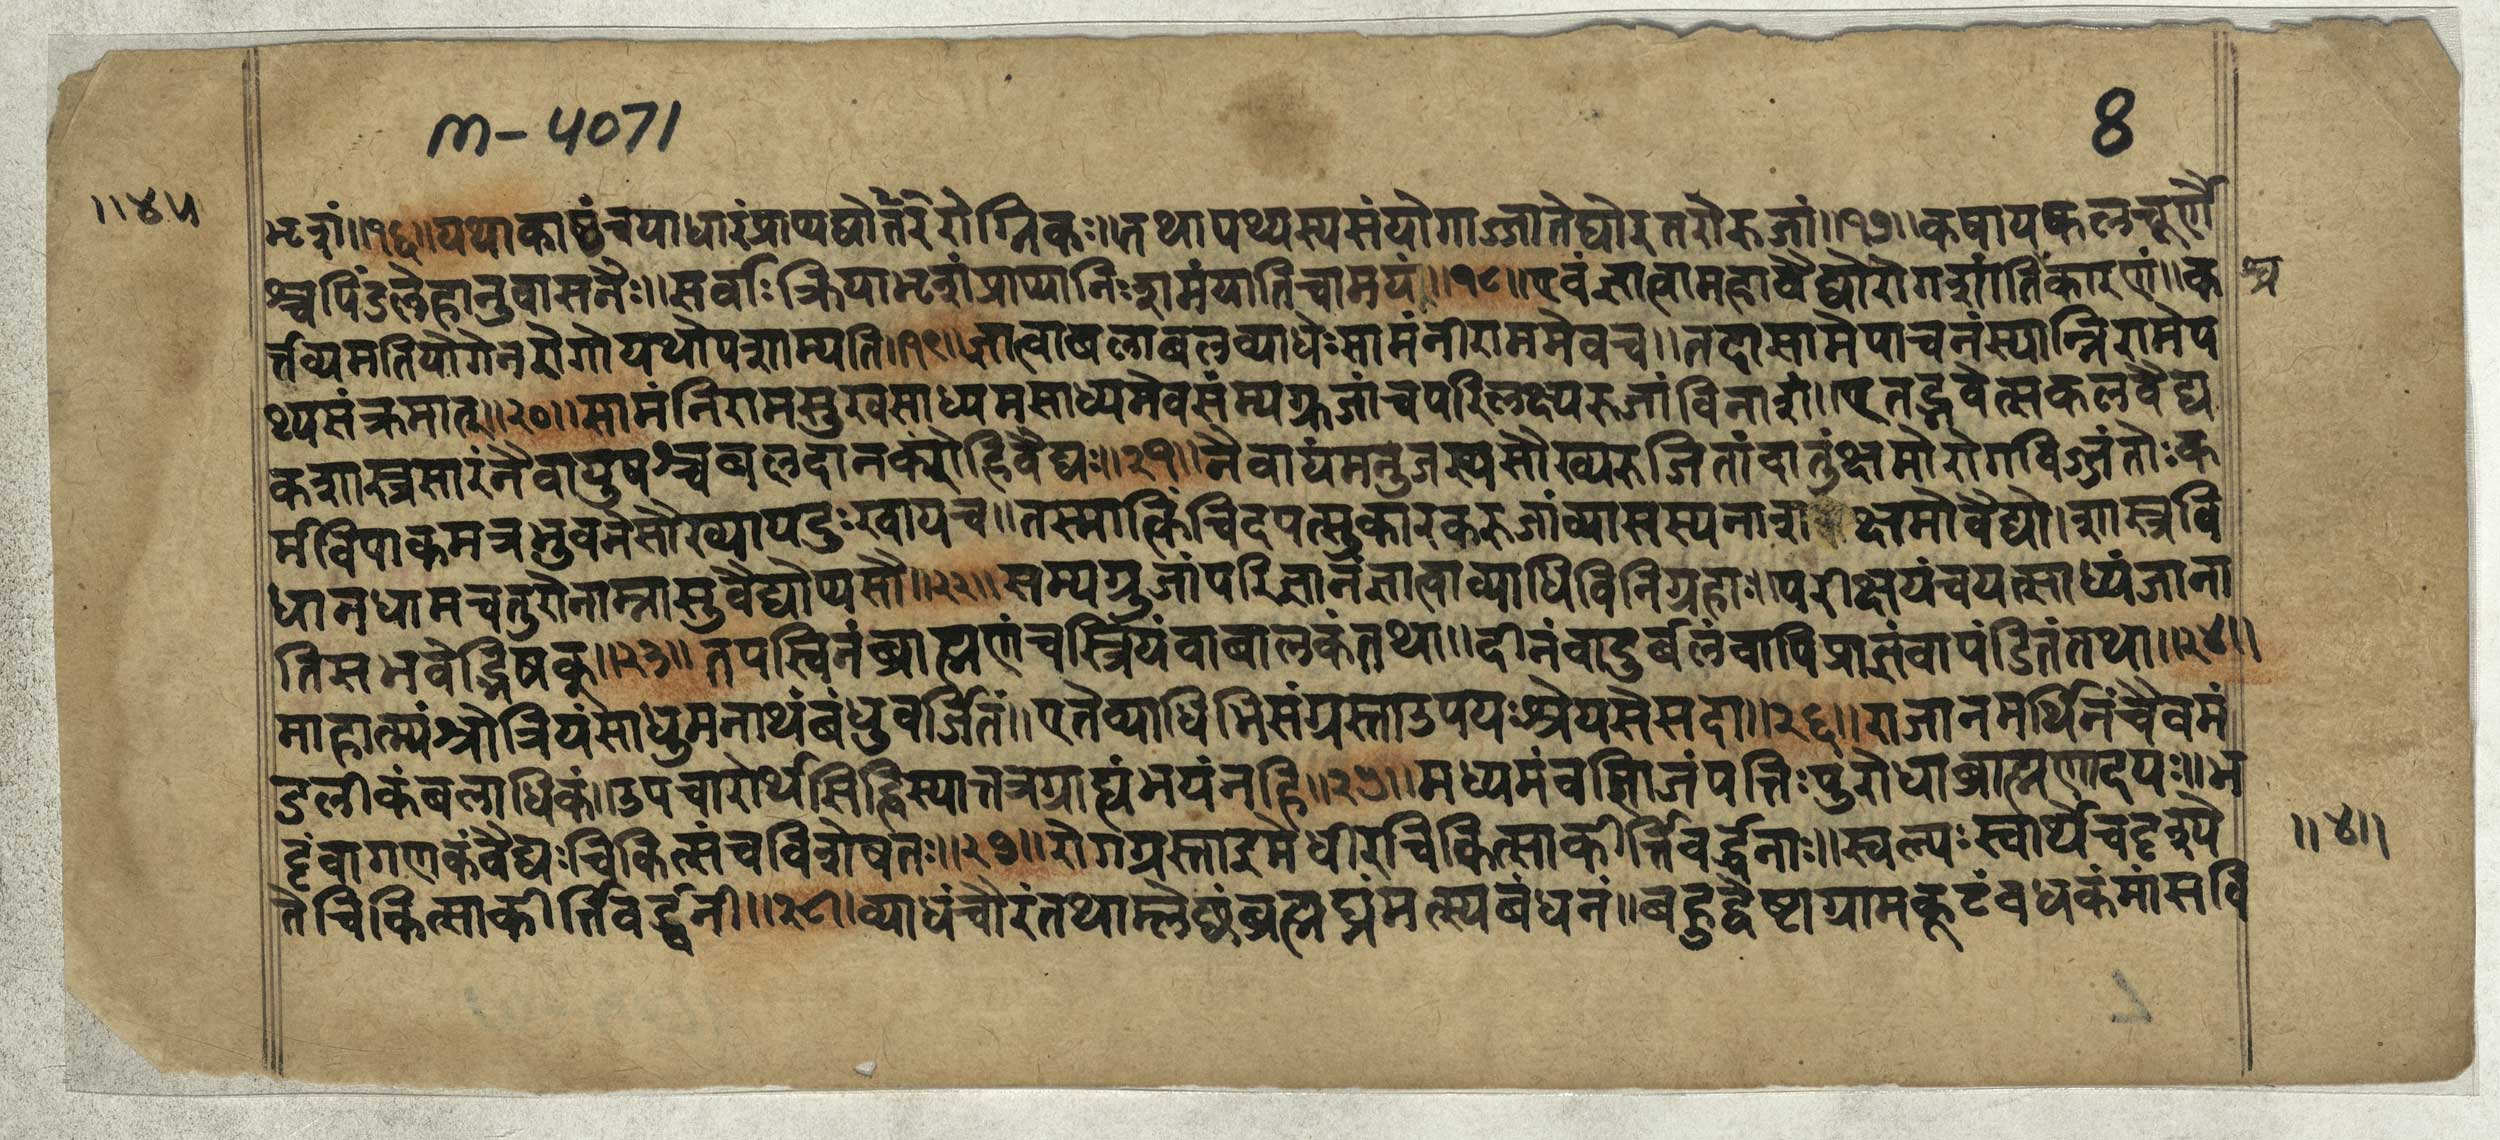 m-4071
8
॥४५
भृशं॥१६॥यथाकाष्ठंचयाधारंप्राप्यघोरतरोग्निकः॥तथापथ्यस्यसंयोगाज्जातेघोरतरोरुजां॥१७॥कषायफलचूर्णै
श्चपिंडलेहानुवासनैः॥सर्वाःक्रियाभृशंप्राप्यानिःशमंयातिचामयं॥१८॥एवंज्ञात्वामहावैद्योरोगशांतिकारणं॥क
र्त्तव्यमतियोगेनरोगोयथोपशाम्यति॥१९॥ज्ञात्वाबलाबलव्याधेःसामंनीराममेवच॥तदासामेपाचनंस्यान्निरामेप
थ्यसंक्रमात्॥२०॥सामंनिरामसुखसाध्यमसाध्यमेवसंम्यग्रुजांचपरिलक्ष्यरुजांविनाशं॥एतद्भवेत्सकलवैद्य
कशास्त्रसारंनैवायुषश्चबलदानकरोहिवैद्यः॥२१॥नैवायंमनुजस्यसौख्यरुजितांदातुंक्षमोरोगविज्जंतोःक
र्मविपाकमत्रभुवनेसौख्यायदुःखायच॥तस्मात्किंचिदपत्सुकारकरुजांव्यासस्यनाश क्षमोवैद्यो।शास्त्रवि
धानधामचतुरोनाम्नासुवैद्योप्यसौ॥२२॥सम्यग्रुजांपरिज्ञानंज्ञात्वाव्याधिविनिग्रहाः॥परीक्षयंचयत्साध्यंजाना
तिसभवेद्भिषक्॥२३॥तपस्विनंब्राह्मणंचस्त्रियंवाबालकंतथा॥दीनंवादुर्बलंवापिप्राज्ञंवापंडितंतथा॥२४॥
माहात्म्यंश्रोत्रियंसाधुमनाथंबंधुवर्जितं॥एतेव्याधिभिसंग्रस्ताउपयःश्रेयसेसदा॥२६॥राजानमर्थिनंचैवमं
डलीकंबलाधिकं॥उपचारोर्थसिद्धिस्यात्तत्रग्राह्यंभयंनहि॥२५॥मध्यमंवणिजंपत्तिःपुरोधाब्राह्मणादयः॥भ
ट्टंवागणकंवैद्यःचिकित्संचविशेषतः॥२७॥रोगग्रस्ताइमेधीरचिकित्साकीर्त्तिवर्द्धनाः॥स्वल्पःस्वार्थेचदृश्ये
तेचिकित्साकीर्त्तिवर्द्धनी॥२८॥व्याधंचौरंतथाम्लेछंब्रह्मघ्नंमत्स्यबंधनं॥बहुद्वेष्टाग्रामकूटंवधकंमांसवि
॥४॥